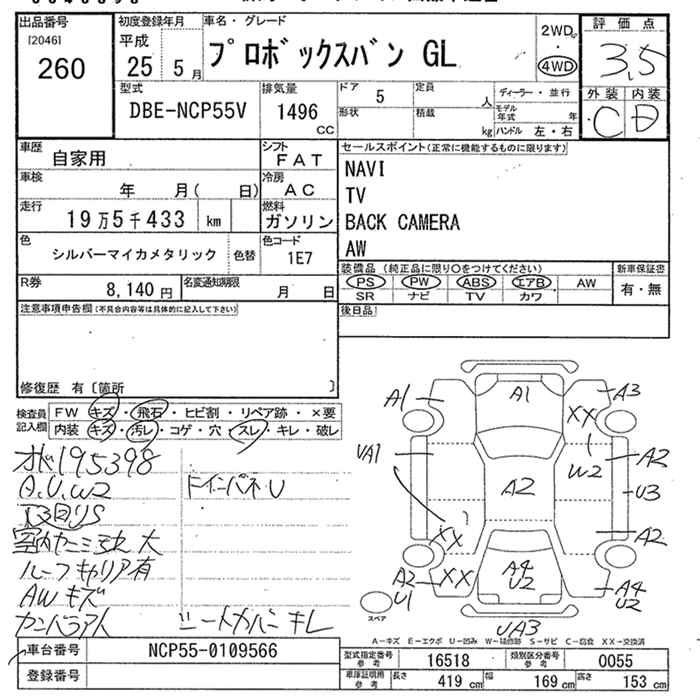 出品番号
[2046]
260
初度登録年月
平成
25 5月
車名・グレード
プロボックスバン GL
2WD
4WD
評価点
3.5
外装 内装
C D
型式
DBE-NCP55V
排気量
1496
cc
ドア 5
定員 人
ディーラー・並行
形状
積載 kg
モデル年式 年
ハンドル 左・右
車歴
自家用
シフト
FAT
車検
年 月( 日)
冷房
AC
走行
19万5千433 km
燃料
ガソリン
色
シルバーマイカメタリック
色替
色コード
1E7
R券
8,140円
名変通知期限
月 日
セールスポイント(正常に機能するものに限ります)
NAVI
TV
BACK CAMERA
AW
装備品(純正品に限り○をつけてください)
新車保証書
PS PW ABS エアB AW
有・無
SR ナビ TV カワ
後日品
注意事項申告欄(不具合内容等は具体的に記入して下さい)
修復歴 有〔箇所 〕
検査員
記入欄
FW キズ・飛石・ヒビ割・リペア跡・×要
内装 キズ・汚レ・コゲ・穴・スレ・キレ・破レ
195398
A.U.W2
ルーフキャリア有
AWキズ
シートカバーキレ
A1
A1
A3
XX
UA1
W2
A2
U3
A2
XX
A2
A2
U1
XX
A4
U2
A4
U2
UA3
スペア
A-キズ E-エクボ U-凹み W-補修跡 S-サビ C-腐食 XX-交換済
車台番号
NCP55-0109566
登録番号
型式指定番号
参考
16518
類別区分番号
参考
0055
車庫証明用
参考
長さ 419 cm
幅 169 cm
高さ 153 cm